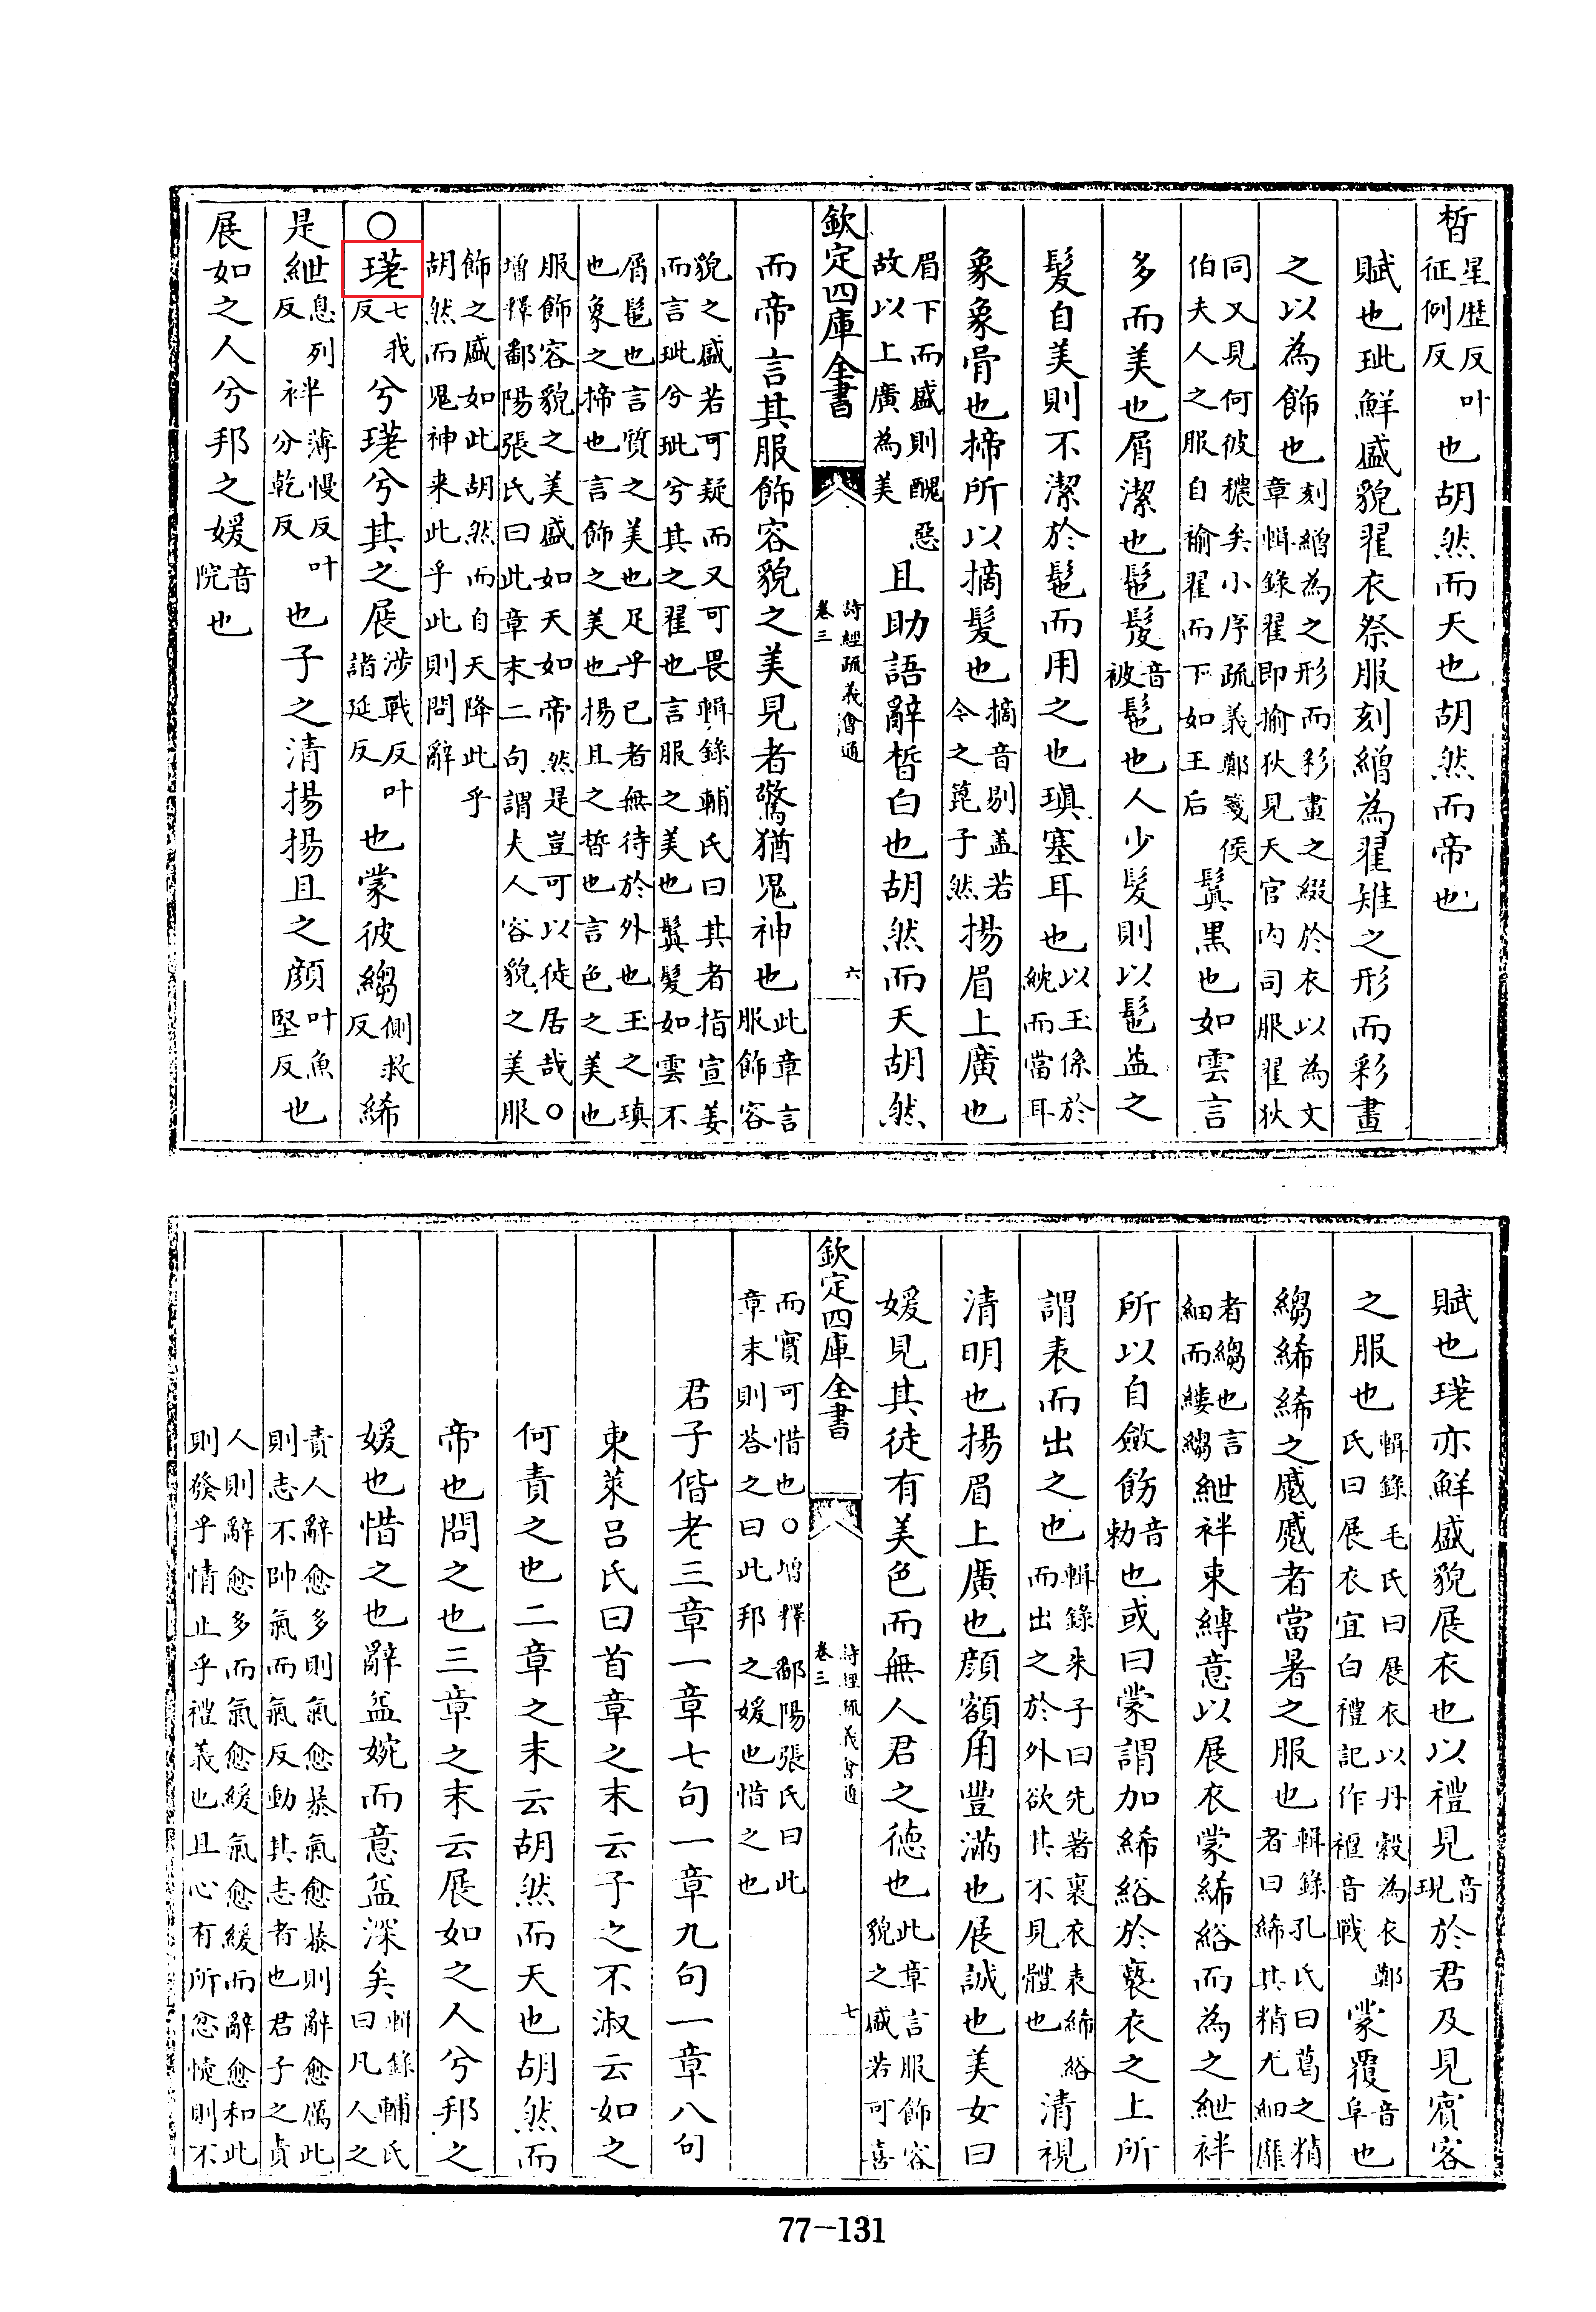 皙星歴反叶征例反也胡然而天也胡然而帝也
賦也玼鮮盛貌翟衣祭服刻繒為翟雉之形而彩畫
之以為飾也刻繒為之形而彩畫之綴於衣以為文
章輯錄翟即揄狄見天官内司服翟狄
同又見何彼穠矣小序疏義鄭箋侯
伯夫人之服自褕翟而下如王后鬒黒也如雲言
多而美也屑潔也髢髲音被髢也人少髮則以髢益之
髮自美則不潔於髢而用之也瑱塞耳也以玉係於
紞而當耳
象象骨也揥所以摘髮也摘音剔盖若令之箆子然揚眉上廣也
眉下而盛則醜惡
故以上廣為美且助語辭皙白也胡然而天胡然
欽定四庫全書
詩經疏義會通
卷三
六
而帝言其服飾容貌之美見者驚猶鬼神也此章言
服飾容
貌之盛若可疑而又可畏輯錄輔氏曰其者指宣姜
而言玼兮玼兮其之翟也言服之美也鬒髮如雲不
屑髢也言質之美也足乎已者無待於外也玉之瑱
也象之揥也言飾之美也揚且之皙也言色之美也
服飾容貌之美盛如天如帝然是豈可以徒居哉○
增釋鄱陽張氏曰此章末二句謂夫人容貌之美服
飾之盛如此胡然而自天降此乎
胡然而鬼神来此乎此則問辭
○瑳七我反兮瑳兮其之展涉戰反叶諸延反也蒙彼縐側救反絺
是紲息列反袢薄慢反叶分乾反也子之清揚揚且之顔叶魚堅反也
展如之人兮邦之媛音院也
賦也瑳亦鮮盛貌展衣也以禮見音現於君及見賓客
之服也輯錄毛氏曰展衣以丹縠為衣鄭
氏曰展衣宜白禮記作襢音戰蒙覆音阜也
縐絺絺之蹙蹙者當暑之服也輯錄孔氏曰葛之精
者曰絺其精尤細靡
者縐也言
細而縷縐紲袢束縛意以展衣蒙絺綌而為之紲袢
所以自斂飭音勅也或曰蒙謂加絺綌於褻衣之上所
謂表而出之也輯錄朱子曰先著裏衣表絺綌
而出之於外欲其不見體也清視
清明也揚眉上廣也顔額角豐滿也展誠也美女曰
媛見其徒有美色而無人君之德也此章言服飾容
貌之盛若可喜
欽定四庫全書
詩經疏義會通
卷三
七
而實可惜也○增釋鄱陽張氏曰此
章末則荅之曰此邦之媛也惜之也
君子偕老三章一章七句一章九句一章八句
東萊呂氏曰首章之末云子之不淑云如之
何責之也二章之末云胡然而天也胡然而
帝也問之也三章之末云展如之人兮邦之
媛也惜之也辭益婉而意益深矣輯錄輔氏
曰凡人之
責人辭愈多則氣愈暴氣愈暴則辭愈厲此
則志不帥氣而氣反動其志者也君子之責
人則辭愈多而氣愈緩氣愈緩而辭愈和此
則發乎情止乎禮義也且心有所忿懥則不
77—131